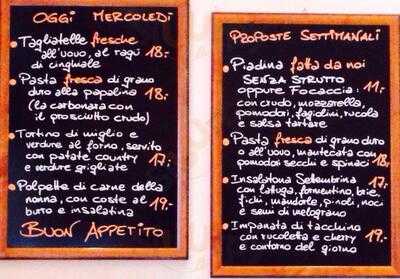 OGGI MERCOLEDÌ
• Tagliatelle fresche
all'uovo, al ragù
di cinghiale 18.-
• Pasta fresca di grano
duro alla papalina 18.-
(la carbonara con
il prosciutto crudo)
• Tortino di miglio e
verdure al forno, servito
con patate country
e verdure grigliate 17.-
• Polpette di carne della
nonna, con coste al 19.-
burro e insalatina
BUON APPETITO
PROPOSTE SETTIMANALI
• Piadina fatta da noi
SENZA STRUTTO
oppure Focaccia: 11.-
con crudo, mozzarella,
pomodori, fagiolini, rucola
e salsa tartare
• Pasta fresca di grano duro
o all'uovo, mantecata con
pomodori secchi e spinaci 18.-
• Insalatona Settembrina 17.-
con lattuga, formentino, brie,
fichi, mandorle, pinoli, noci
e semi di melograno
• Impanata di tacchino
con rucoletta e cherry 19.-
e contorno del giorno